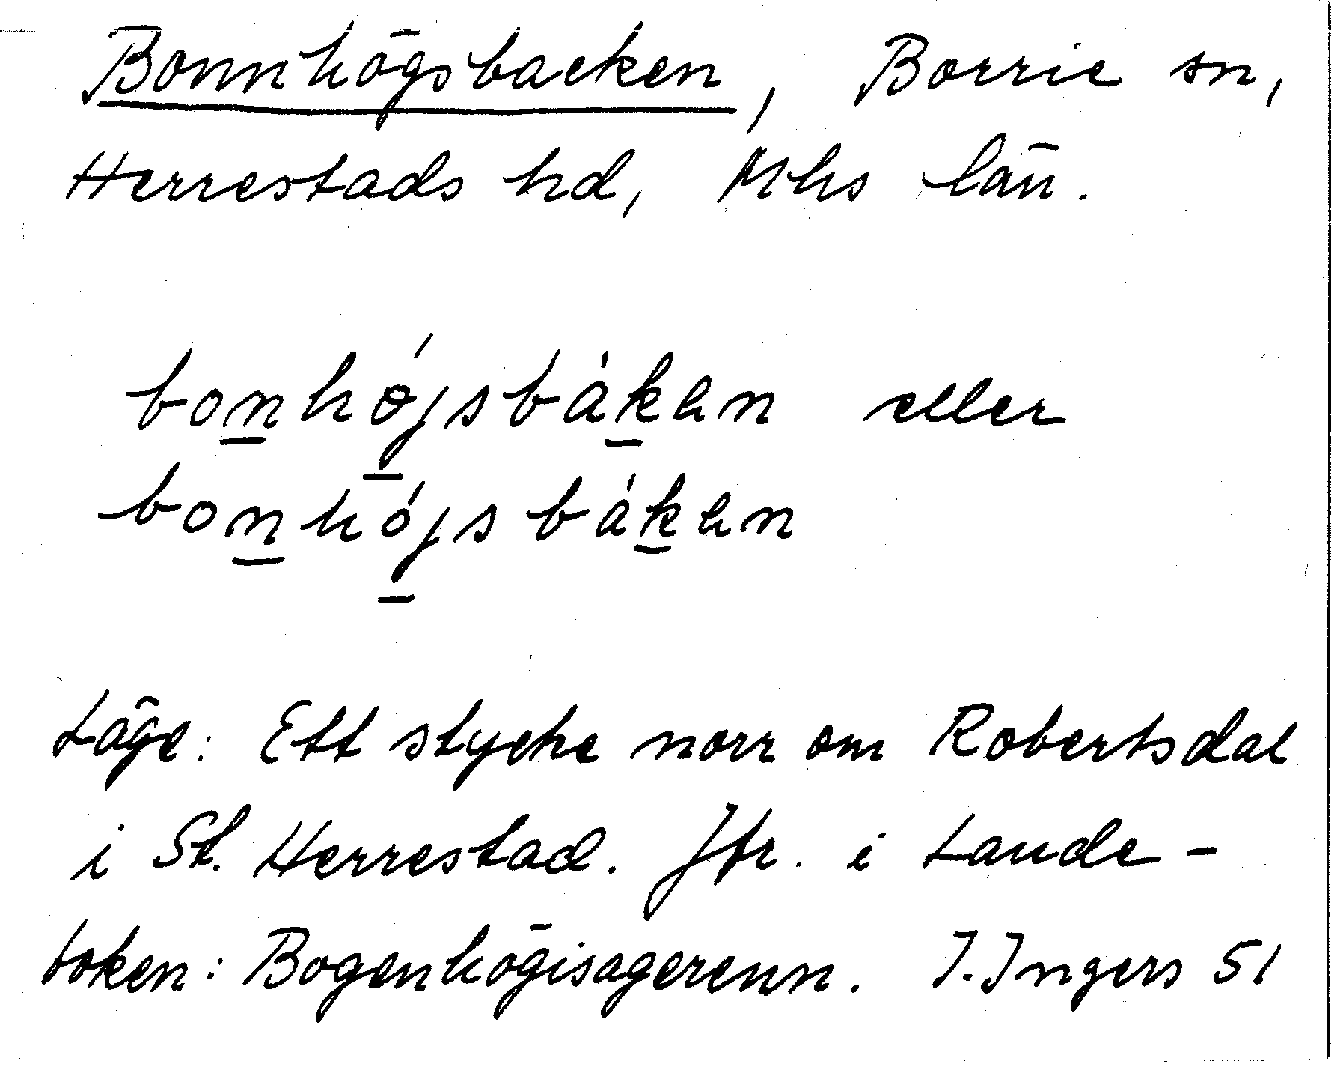 Bonnhögsbacken, Borrie sn,
Herrestads hd, Mhs län.
bonhǿjsbákan eller
bonhójsbákan
Läge: Ett stycke norr om Robertsdal
i St. Herrestad. Jfr. i Lande-
boken: Bogenhögisagerenn. I. Ingers 51